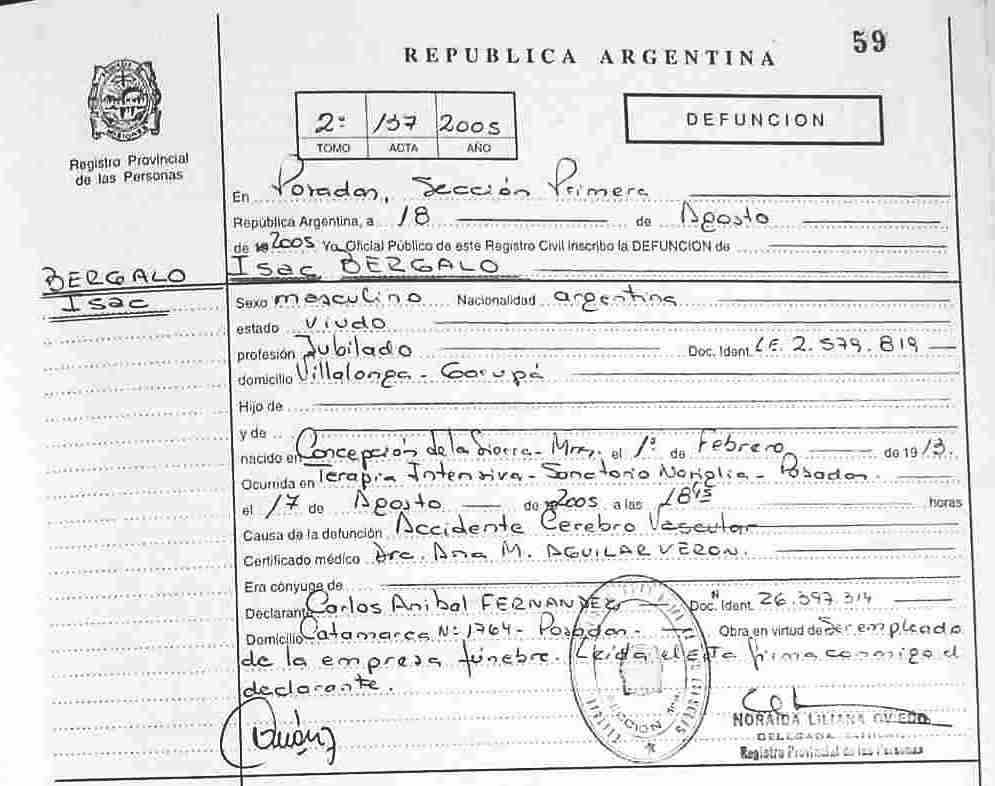 59
REPUBLICA ARGENTINA
2º 137 2005
TOMO ACTA AÑO
DEFUNCION
Registro Provincial
de las Personas
En Posadas, Sección Primera
República Argentina, a 18 de Agosto
de 2005 Yo, Oficial Público de este Registro Civil inscribo la DEFUNCION de
Isac BERGALO
BERGALO
Isac
Sexo masculino Nacionalidad argentina
estado Viudo
profesión Jubilado Doc. Ident. L.E. 2.579.819
domicilio Villalonga - Garupá
Hijo de
y de
nacido en Concepción de la Sierra - Mnes. el 1º de Febrero de 1913.
Ocurrida en Terapia Intensiva - Sanatorio Nosiglia - Posadas.
el 17 de Agosto de 2005 a las 18 45 horas
Causa de la defunción Accidente Cerebro Vascular
Certificado médico Dra. Ana M. AGUILAR VERON.
Era cónyuge de
Declarante Carlos Anibal FERNANDEZ Doc. Ident. N 26.397.314
Domicilio Catamarca Nº 1764 - Posadas - Obra en virtud de ser empleado
de la empresa fúnebre. Leída el acta firma conmigo el
declarante.
NORAIDA LILIANA OVIEDO
DELEGADA
Registro Provincial de las Personas